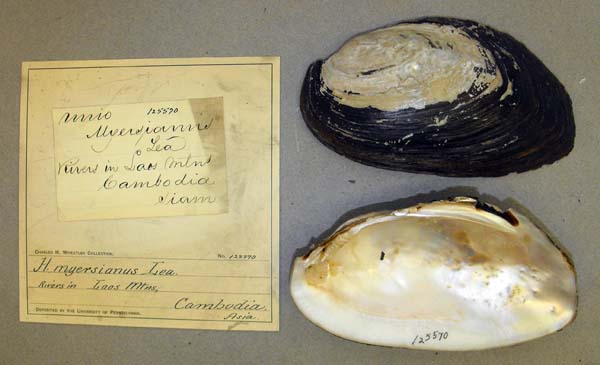 125590
Unio
Myersianus
Lea
Rivers in Laos Mtns
Cambodia
Siam
CHARLES M. WHEATLEY COLLECTION.
No. 125590
H. myersianus Lea.
Rivers in Laos Mtns,
Cambodia.
Asia.
DEPOSITED BY THE UNIVERSITY OF PENNSYLVANIA.
125590